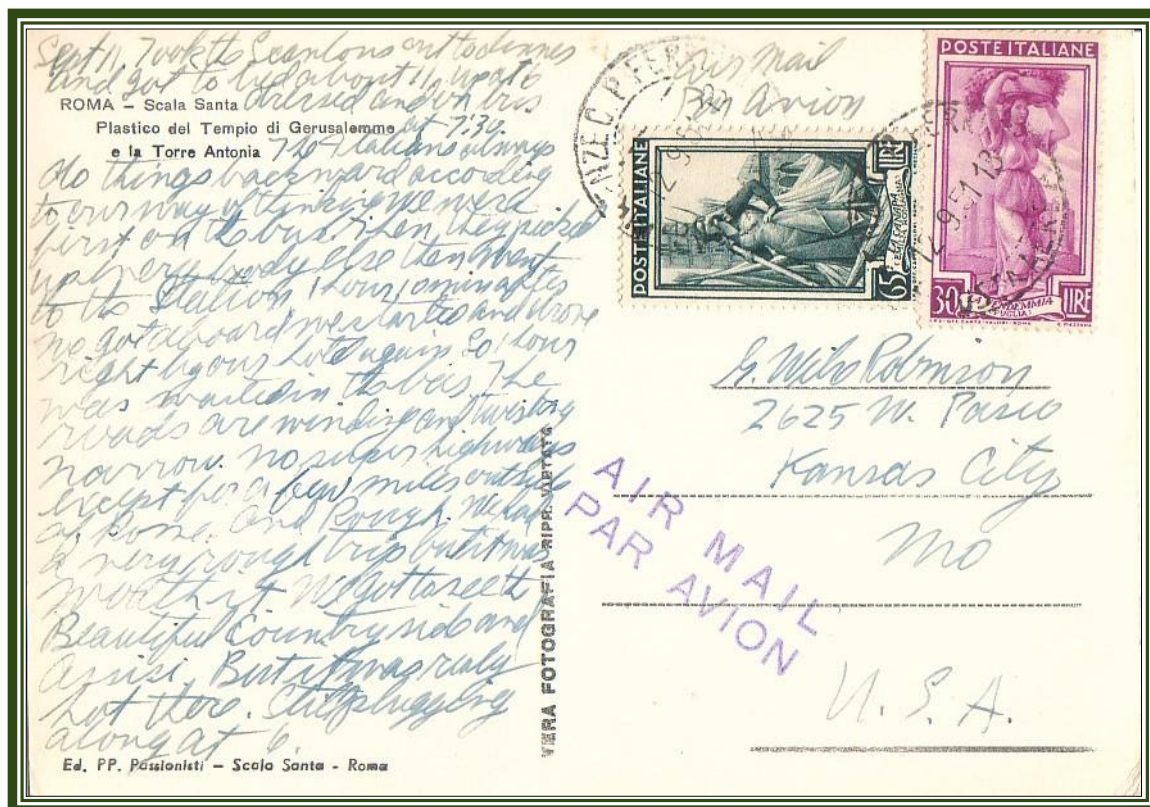 Sept 11. Took the Scanlons out to dinner
and got to bed about 11, up at 6
dressed and on bus
ROMA – Scala Santa
at 7:30.
Plastico del Tempio di Gerusalemme
e la Torre Antonia
The Italians always
do things backward according
to our way of thinking we were
first on the bus. Then they picked
up every body else then went
to the Station 1 hour, 0 minutes
no got aboard we started and drove
right by our hotel again So 1 hour
was wasted in the bus. The
roads are winding and twisting
narrow. no super highways
except for a few miles outside
of Rome. And Rough. We had
a very rough trip but it was
worth it We got to see the
Beautiful Country side and
Assisi. But it was really
hot there. Still plugging
along at 6.
Ed. PP. Passionisti – Scala Santa - Roma
VERA FOTOGRAFIA RIPR. VIETATA
Air Mail
Par Avion
POSTE ITALIANE
65 LIRE
LA CANAPA
POSTE ITALIANE
30 LIRE
LA VENDEMMIA
(PUGLIA)
12.9.51.13
AIR MAIL
PAR AVION
Robinson
2625 W. Paseo
Kansas City
Mo
U.S.A.